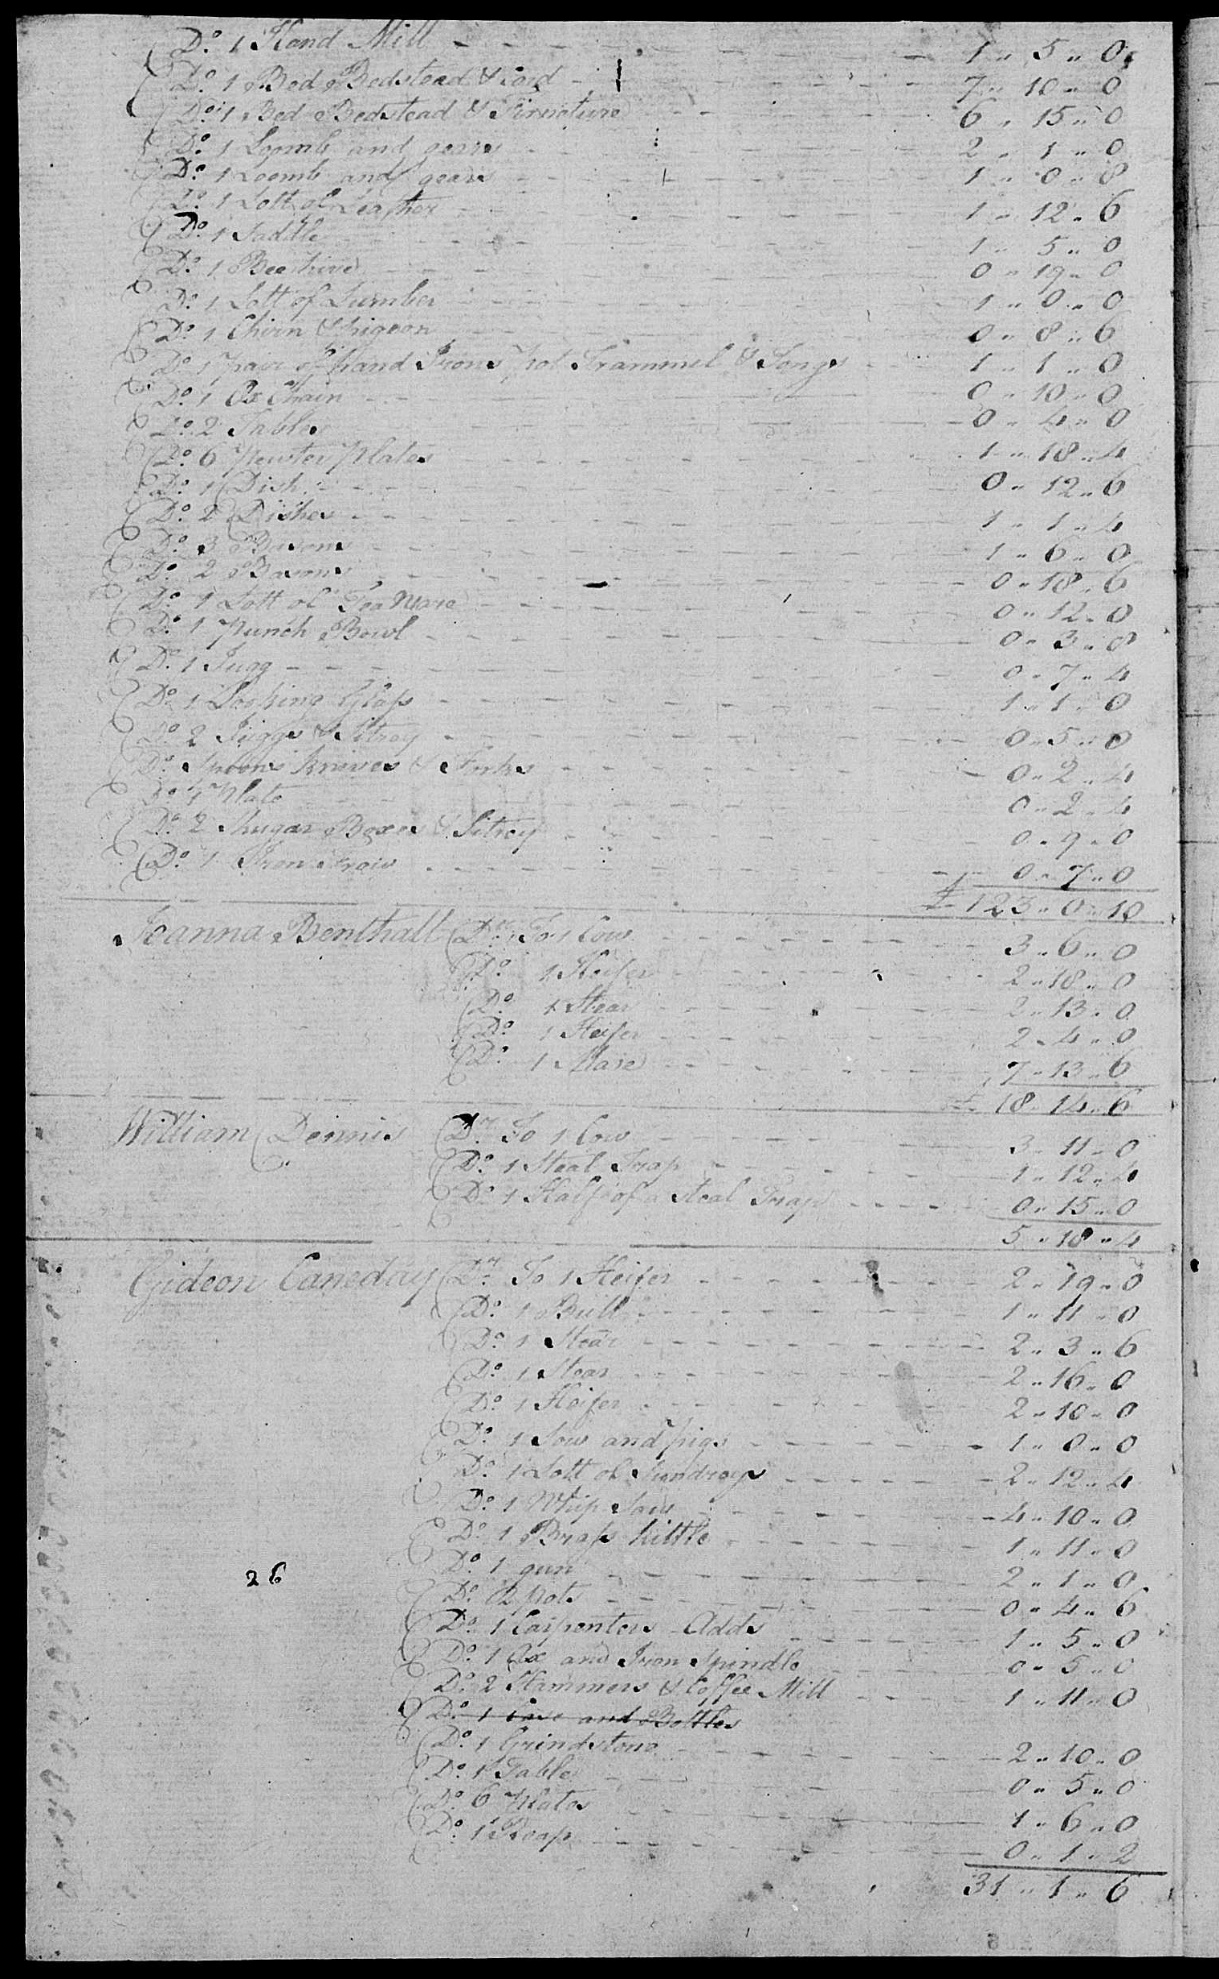 Do 1 Hand Mill 1 " 5 " 0
Do 1 Bed Bedstead & Cord 7 " 10 " 0
Do 1 Bed Bedstead & Firniture 6 " 15 " 0
Do 1 Loomb and gears 2 " 1 " 0
Do 1 Loomb and gears 1 " 0 " 8
Do 1 Lott of Leather 1 " 12 " 6
Do 1 Saddle 1 " 5 " 0
Do 1 Beehive 0 " 19 " 0
Do 1 Lott of Lumber 1 " 0 " 0
Do 1 Churn & Pigeon 0 " 8 " 6
Do 1 pair of hand Irons pot Trammel & Tongs 1 " 1 " 0
Do 1 Ox Chain 0 " 10 " 0
Do 2 Tables 0 " 4 " 0
Do 6 Pewter Plates 1 " 18 " 4
Do 1 Dish 0 " 12 " 6
Do 2 Dishes 1 " 1 " 4
Do 3 Basons 1 " 6 " 0
Do 2 Basons 0 " 18 " 6
Do 1 Lott of Tea Ware 0 " 12 " 0
Do 1 Punch Bowl 0 " 3 " 8
Do 1 Jugg 0 " 7 " 4
Do 1 Looking Glass 1 " 1 " 0
Do 2 Juggs & 0 " 5 " 0
Do Spoons knives & Forks 0 " 2 " 4
Do 1 Plate 0 " 2 " 4
Do 2 Shugar Boxes & 0 " 9 " 0
Do 1 Iron 0 " 7 " 0
£ 123 " 0 " 10
Joanna Benthall Dr To 1 Cow 3 " 6 " 0
Do 1 Heifer 2 " 18 " 0
Do 1 Stear 2 " 13 " 0
Do 1 Heifer 2 " 4 " 0
Do 1 Mare 7 " 13 " 6
£ 18 " 14 " 6
William Dennis Dr To 1 Cow 3 " 11 " 0
Do 1 Steal Trap 1 " 12 " 4
Do 1 Half of a steal Trap 0 " 15 " 0
5 " 18 " 4
Gideon Caneday Dr To 1 Heifer 2 " 19 " 0
Do 1 Bull 1 " 11 " 0
Do 1 Stear 2 " 3 " 6
Do 1 Stear 2 " 16 " 0
Do 1 Heifer 2 " 10 " 0
Do 1 Sow and pigs 1 " 0 " 0
Do 1 Lott of Sundreys 2 " 12 " 4
Do 1 Whip Saw 4 " 10 " 0
Do 1 Brass kittle 1 " 11 " 0
Do 1 gun 2 " 1 " 0
26
Do 2 pots 0 " 4 " 6
Do 1 Carpenters Adds 1 " 5 " 0
Do 1 Ax and Iron Spindle 0 " 5 " 0
Do 2 Hammers & Coffee Mill 1 " 11 " 0
Do 1 Case and Bottles
Do 1 Grindstone 2 " 10 " 0
Do 1 Table 0 " 5 " 0
Do 6 Plates 1 " 6 " 0
Do 1 Reap 0 " 1 " 2
31 " 1 " 6